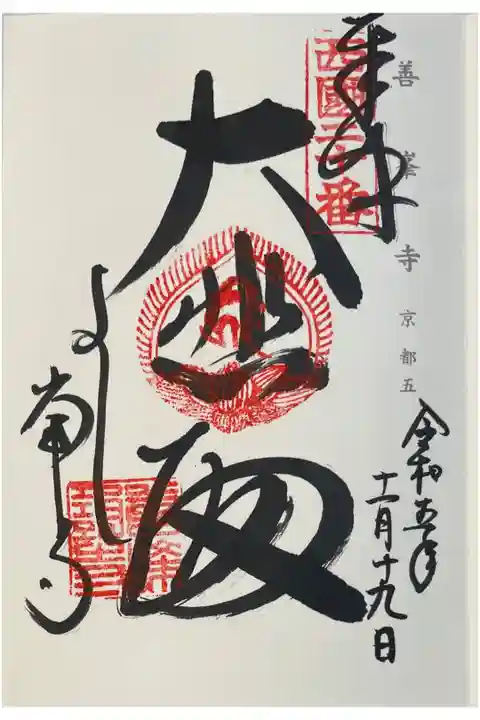 善峯寺 京都五
奉拝
西國二十番
大悲殿
令和五年
十一月十九日